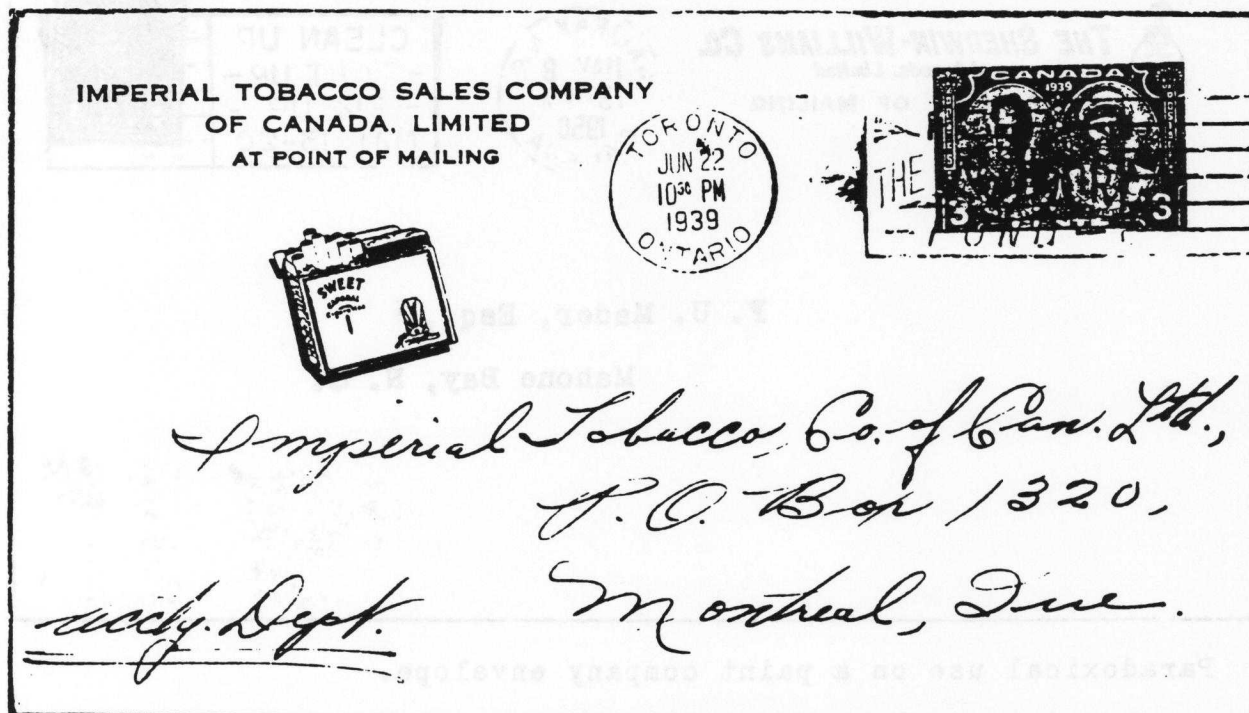 IMPERIAL TOBACCO SALES COMPANY
OF CANADA, LIMITED
AT POINT OF MAILING
TORONTO
JUN 22
10 30 PM
1939
ONTARIO
THE
CANADA
1939
3 3
FUND
SWEET
Imperial Tobacco Co. of Can. Ltd.,
P. O. Box 1320,
Montreal, Que.
Dept.